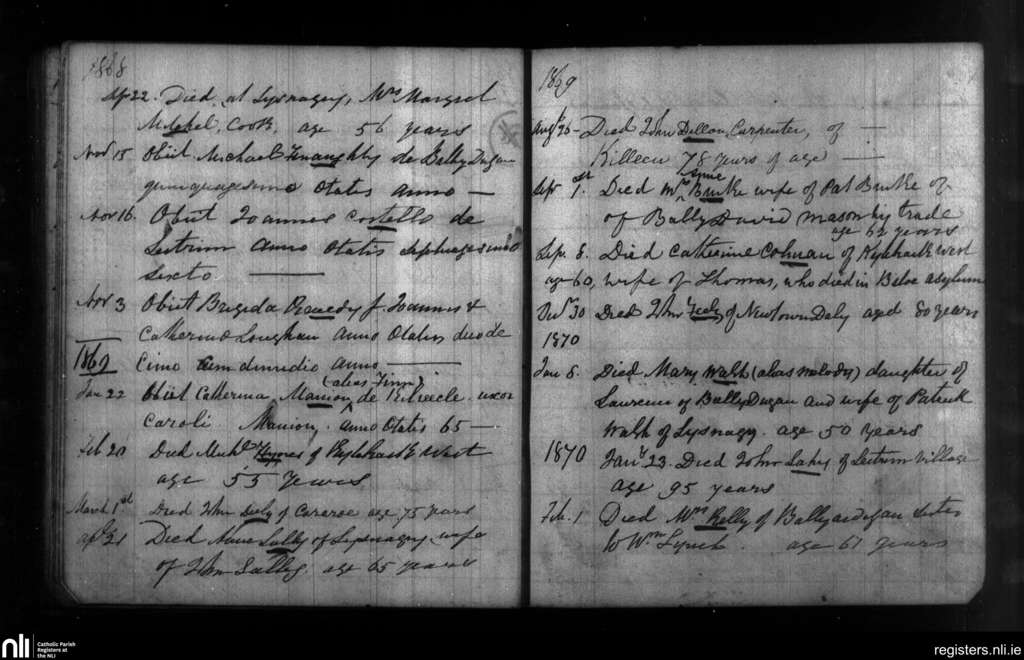 1868
Ap 22. Died, at Lysnagry, Mrs Margret
Mitchel, Cook, age 56 years
Novr 15 Obiit Michael Finaughty de BallyDugan
quinquagesimo Otatis anno —
Nov 16. Obiit Joannes Costello de
Leitrim anno Otatis septuagesimo
Sexto
Nov 3 Obiit Brigida f. Joannis &
Catherina Loughnan anno Otatis duode
1869 Cimo cum dimidio anno
(alias Finn)
Jan 22 Obiit Catherina Manion de uxor
Caroli Manion. anno Otatis 65 —
Feb 20 Died Michl Hynes of West
age 55 Years
March 1st Died John Seely of age 75 years
Apl 21 Died Anne Lally of Lysnagry, wife
of John Lally. age 65 years
1869
Augt 26 - Died John Dillon, Carpenter, of —
Killeen 78 Years of age —
Anne
Sepr 1st. Died Mrs Burke wife of Pat Burke of
of BallyDavid mason by trade
age 62 years
Sep. 8. Died Catherine Colman of West
age 60, wife of Thomas, who died in Asylum
Decr 30 Died John Feely of NewtownDaly aged 80 years
1870
Jan 5. Died Mary Walsh (alias Melody) daughter of
Laurence of BallyDugan and wife of Patrick
Walsh of Lysnagry. age 50 years
1870 Jany 23. Died John Lahy of Leitrim Village
age 95 years
Feb. 1 Died Mrs Kelly of Ballyardigan sister
to Wm Lynch. age 61 years
nli
Catholic Parish
Registers at
the NLI
registers.nli.ie